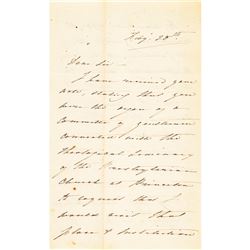 Feby 28th.
Dear Sir
I have received your
note, stating that you
were the organ of a
committee of gentlemen
connected with the
Theological Seminary
of the Presbyterian
Church at Princeton
to request that I
would visit that
place & Institution